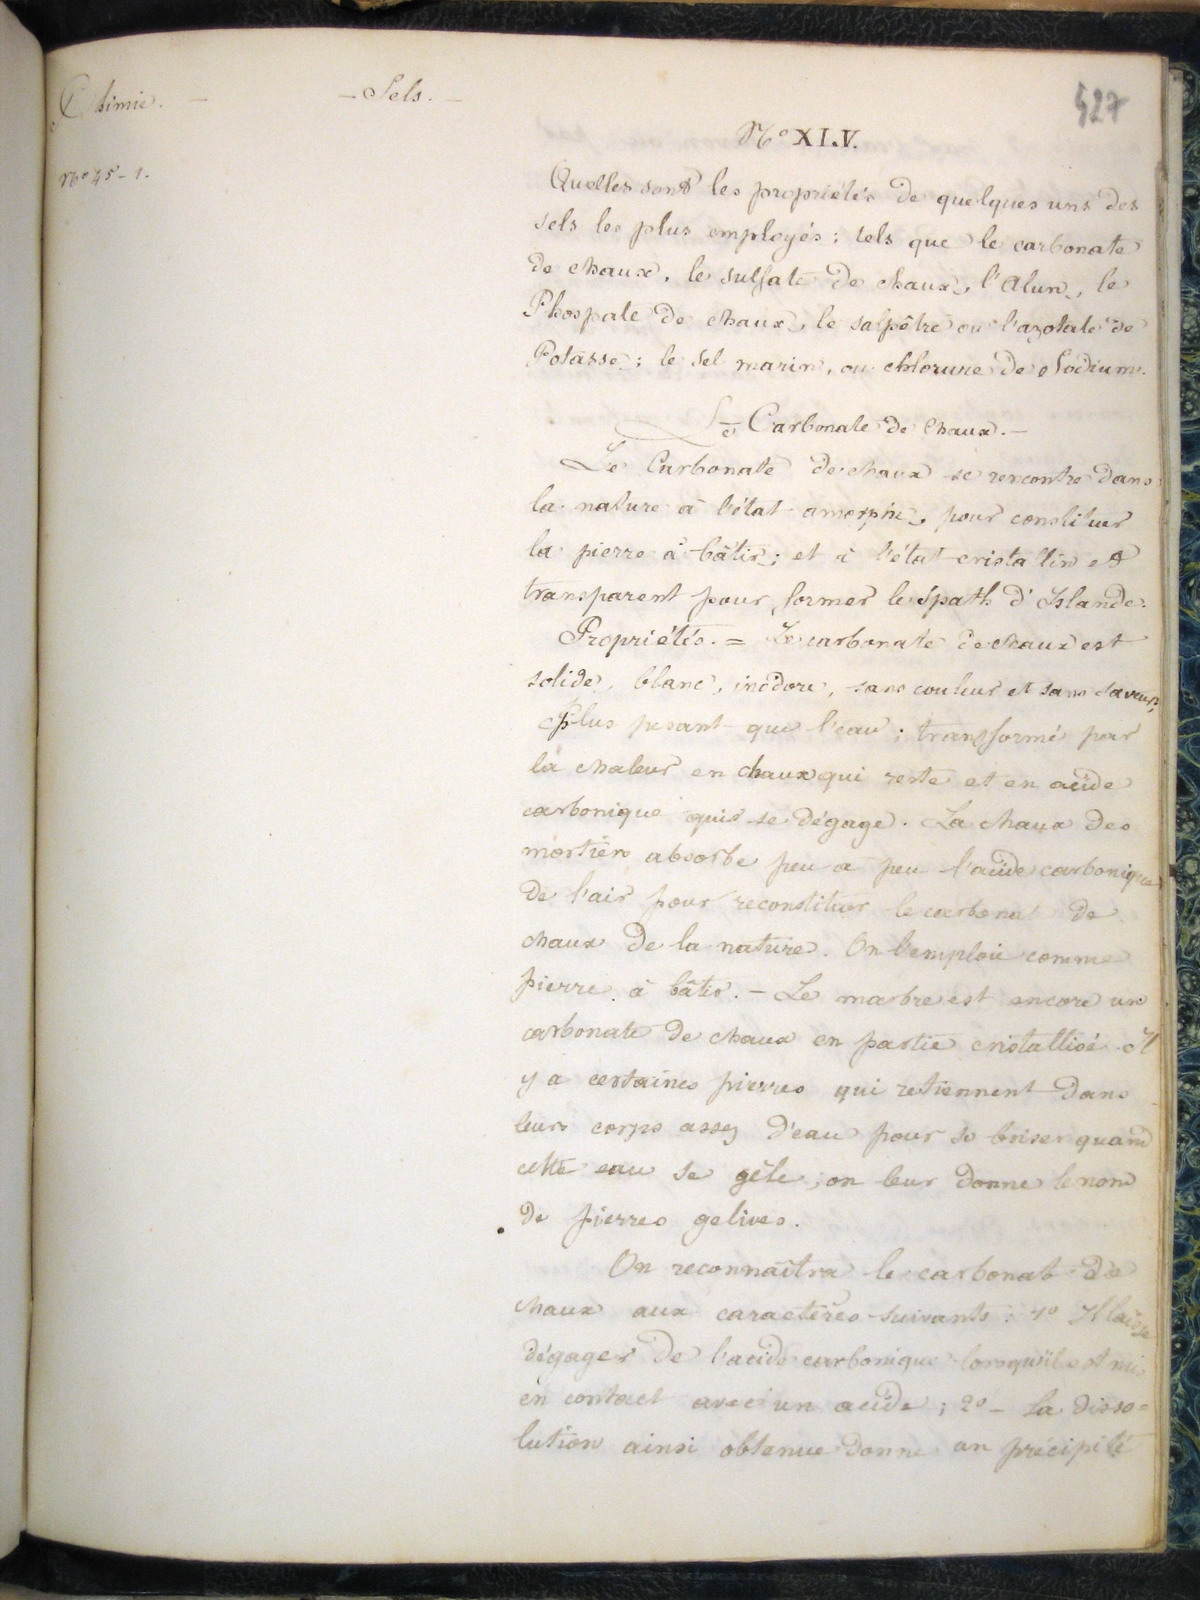 Chimie. — — Sels. —
527
N° XLV.
N° 45 - 1.
Quelles sont les propriétés de quelques uns des
sels les plus employés ; tels que le carbonate
de chaux, le sulfate de chaux, l'Alun, le
Phospate de chaux, le salpêtre ou l'azotate de
Potasse ; le sel marin, ou chlorure de Sodium.
Le Carbonate de chaux. —
Le Carbonate de chaux se rencontre dans
la nature à l'état amorphe, pour constituer
la pierre à bâtir ; et à l'état cristallin et
transparent pour former le spath d'Islande.
Propriétés. = Le carbonate de chaux est
solide, blanc, inodore, sans couleur et sans saveur,
Plus pesant que l'eau ; transformé par
la chaleur en chaux qui reste et en acide
carbonique qui se dégage. La chaux des
mortiers absorbe peu à peu l'acide carbonique
de l'air pour reconstituer le carbonat de
chaux de la nature. On l'emploie comme
pierre à bâtir. — Le marbre est encore un
carbonate de chaux en partie cristallisé. Il
y a certaines pierres qui retiennent dans
leurs corps assez d'eau pour se briser quand
cette eau se gèle ; on leur donne le nom
de pierres gelives.
On reconnaîtra le carbonat de
chaux aux caractères suivants : 1° Il laisse
dégager de l'acide carbonique lorsqu'il est mis
en contact avec un acide ; 2° — La disso=
lution ainsi obtenue donne un précipité